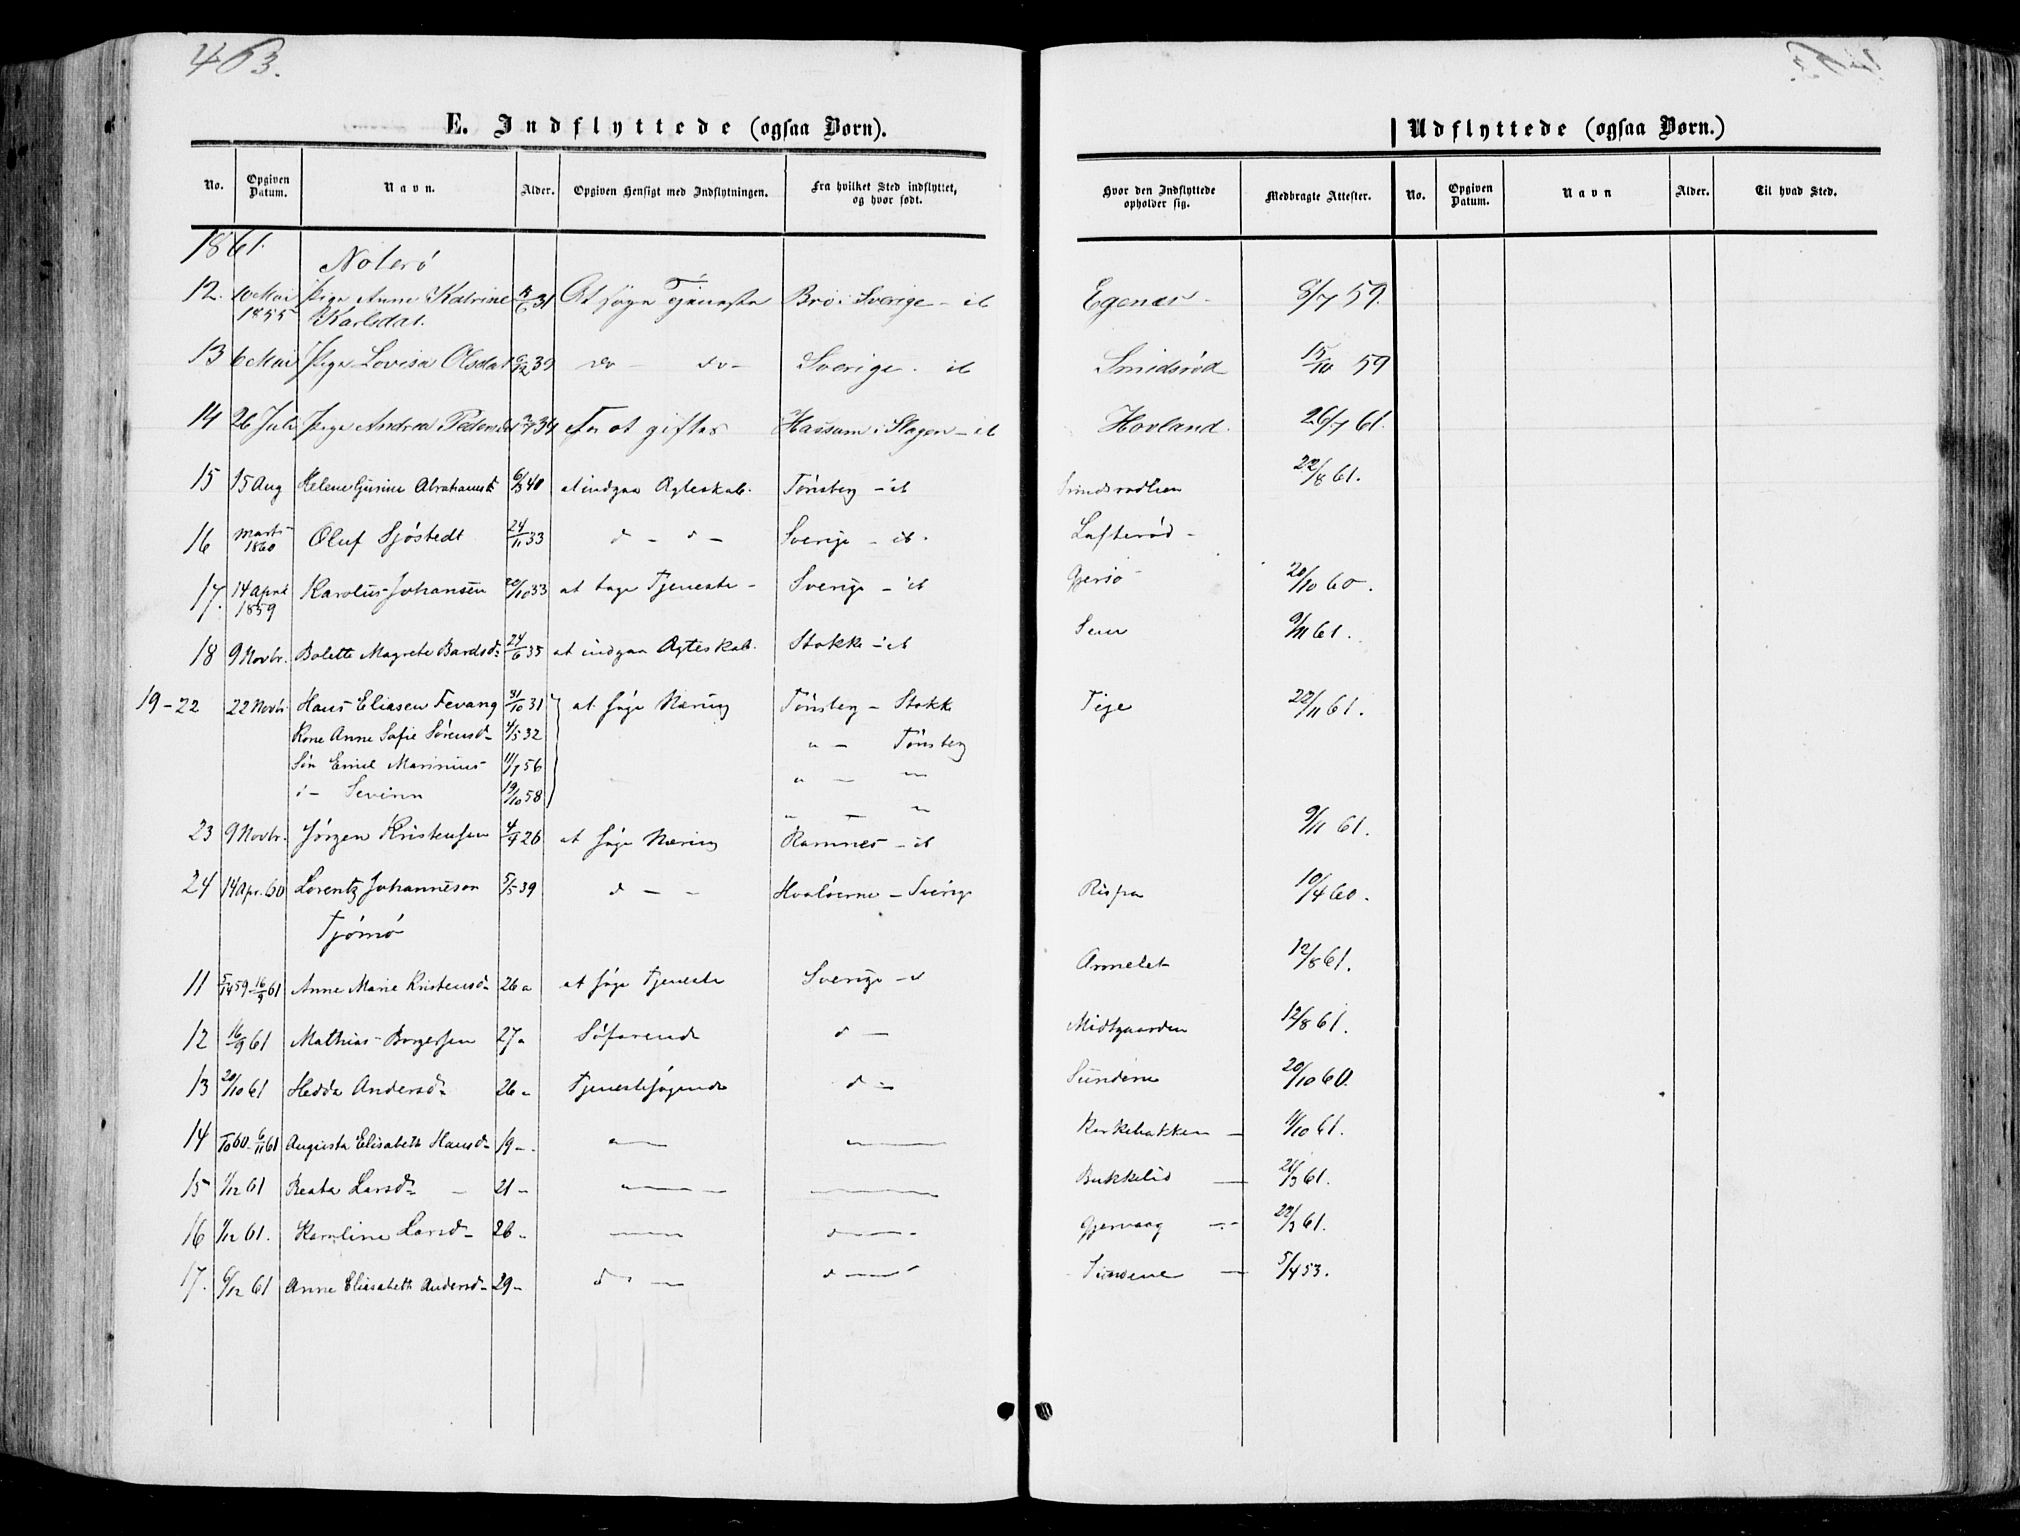 463.
E. Indflyttede (ogsaa Børn).
Udflyttede (ogsaa Børn.)
No. Opgiven Datum. Navn. Alder. Opgiven Hensigt med Indflytningen. Fra hvilket Sted indflyttet, og hvor født. Hvor den Indflyttede opholder sig. Medbragte Attester. No. Opgiven Datum. Navn Alder. Til hvad Sted.
1861.
Nøterø
12. 10 Mai 1855 Pige Anne Katrine Karlsdat. 31 At søge Tjeneste Bro i Sverige - ib Egenes - 8/7 59.
13 6 Mai Pige Lovisa Olsdat 6/12 39 do - do - Sverige - ib Smidsrød 15/10 59
14 26 Juli Pige Andrea Pedersd 34 For at giftes Hassum i Slagen - ib Hovland. 26/7 61.
15 15 Aug Helene Gurine Abrahamsd 6/3 40 at indgaa Ægteskab. Tønsberg - ib Smidsrødlien 22/8 61.
16 Marts 1860 Oluf Sjøstedt 24/11 33 d - d - Sverige - ib. Lofterød -
17. 14 April 1859 Karolus Johansen 20/10 33 at tage Tjeneste - Sverige - ib Gjersø - 20/10 60.
18 9 Novbr. Bolette Magrete Bardsd: 24/6 35 at indgaa Ægteskab. Stokke - ib Sem 9/11 61.
19-22 22 Novbr Hans Eliasen Fevang 31/10 31 at søge Næring Tønsberg - Stokk Teie 22/11 61.
Kone Anne Sofie Sørensd- 4/5 32 " - Tønsberg
Søn Emil Marinius 11/7 56 " - "
d - Severin 19/10 58 " - "
23 9 Novbr. Jørgen Kristensen 4/9 26 at søge Næring Ramnes - ib 9/11 61.
24 14 Apr. 60 Lorentz Johanneson 5/5 39 d - - Hvaløerne - Sverige Rispa 10/4 60.
Tjømø
11 5/14 59 - 16/9 61 Anne Marie Kristensd- 26 a at søge Tjeneste Sverige - d Armelet 12/8 61.
12 16/9 61 Mathias Borgersen 27 - Søfarende d - Midtgaarden 12/8 61.
13 20/10 61 Hedda Andersd- 26 - Tjenestesøgende d - Sundene 20/10 60.
14 /10 60 - 6/11 61 Augusta Elisabeth Hansd- 19 - Kirkebakken - 11/10 61.
15 1/12 61 Beata Larsd- 21 - Bukkelid - 21/3 61.
16 1/12 61. Karoline Larsd- 26 - d - Gjervaag - 22/3 61.
17. 6/12 61 Anne Elisabeth Andersd- 29 - d - d - Sundene - 5/4 53.